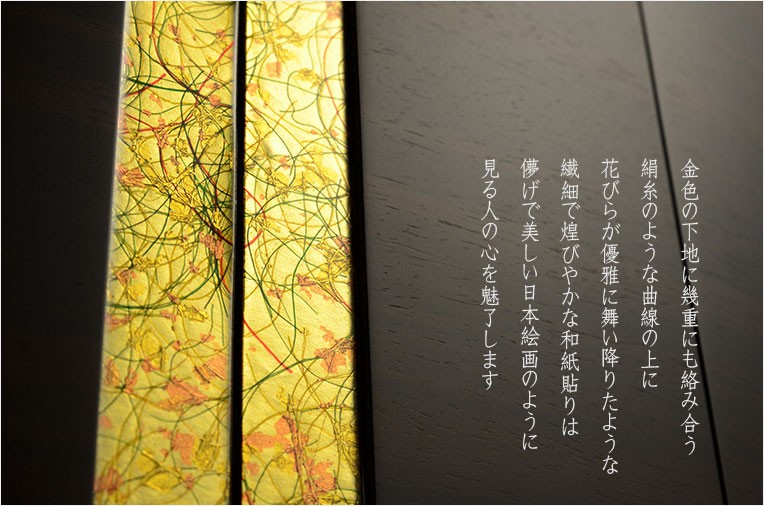 金色の下地に幾重にも絡み合う
絹糸のような曲線の上に
花びらが優雅に舞い降りたような
繊細で煌びやかな和紙貼りは
儚げで美しい日本絵画のように
見る人の心を魅了します